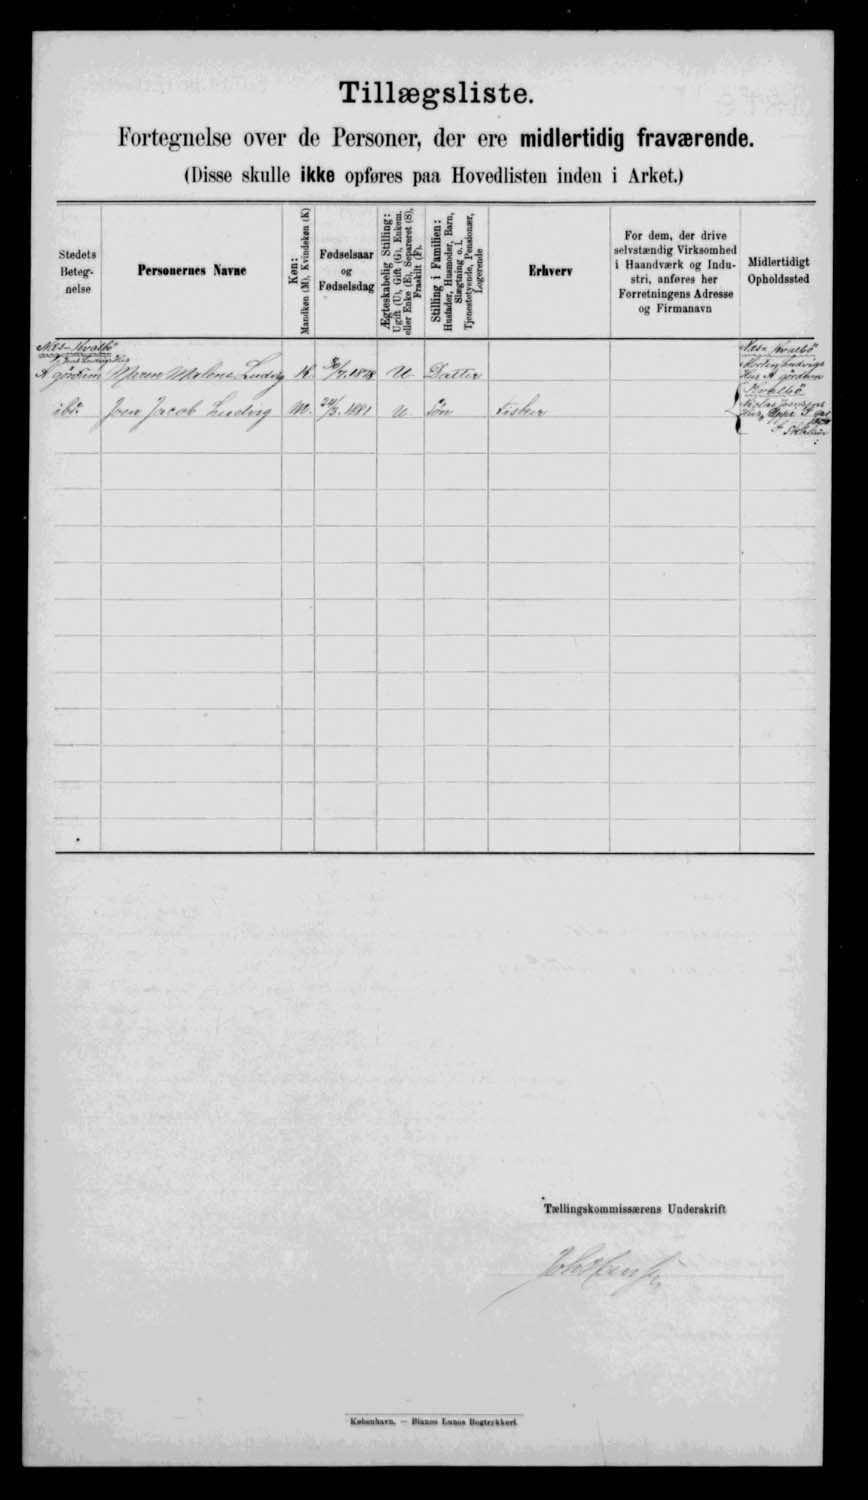 Tillægsliste.
Fortegnelse over de Personer, der ere midlertidig fraværende.
(Disse skulle ikke opføres paa Hovedlisten inden i Arket.)
Stedets
Beteg-
nelse
Personernes Navne
Køn:
Mandkøn (M), Kvindekøn (K)
Fødselsaar
og
Fødselsdag
Ægteskabelig Stilling:
Ugift (U), Gift (G), Enkem.
eller Enke (E), Separeret (S),
Fraskilt (F).
Stilling i Familien:
Husfader, Husmoder, Barn,
Slægtning o. l.
Tjenestetyende, Pensionær,
Logerende
Erhverv
For dem, der drive
selvstændig Virksomhed
i Haandværk og Indu-
stri, anføres her
Forretningens Adresse
og Firmanavn
Midlertidigt
Opholdssted
Næs - Kvalbø
Malene Ludvig K. 1878 U. Datter
Næs - Kvalbø
ibd: Joen Jacob Ludvig M. 24/3. 1881 U Søn Fisker
Kvalbø
Tællingskommissærens Underskrift
København. — Bianco Lunos Bogtrykkeri